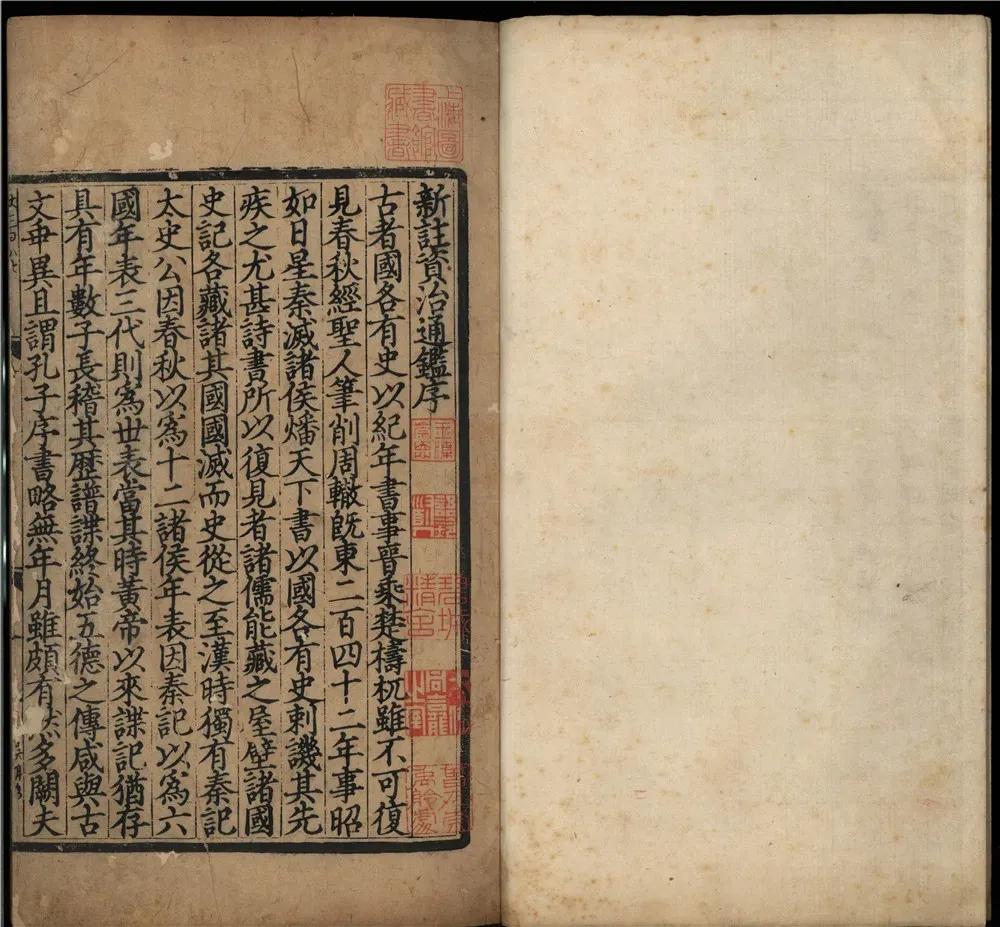 新註資治通鑑序
古者國各有史以紀年書事晉乘楚檮杌雖不可復
見春秋經聖人筆削周轍旣東二百四十二年事昭
如日星秦滅諸侯燔天下書以國各有史刺譏其先
疾之尤甚詩書所以復見者諸儒能藏之屋壁諸國
史記各藏諸其國國滅而史從之至漢時獨有秦記
太史公因春秋以爲十二諸侯年表因秦記以爲六
國年表三代則爲世表當其時黃帝以來諜記猶存
具有年數子長稽其歷譜諜終始五德之傳咸與古
文乖異且謂孔子序書略無年月雖頗有然多闕夫
上海圖
書館
藏書